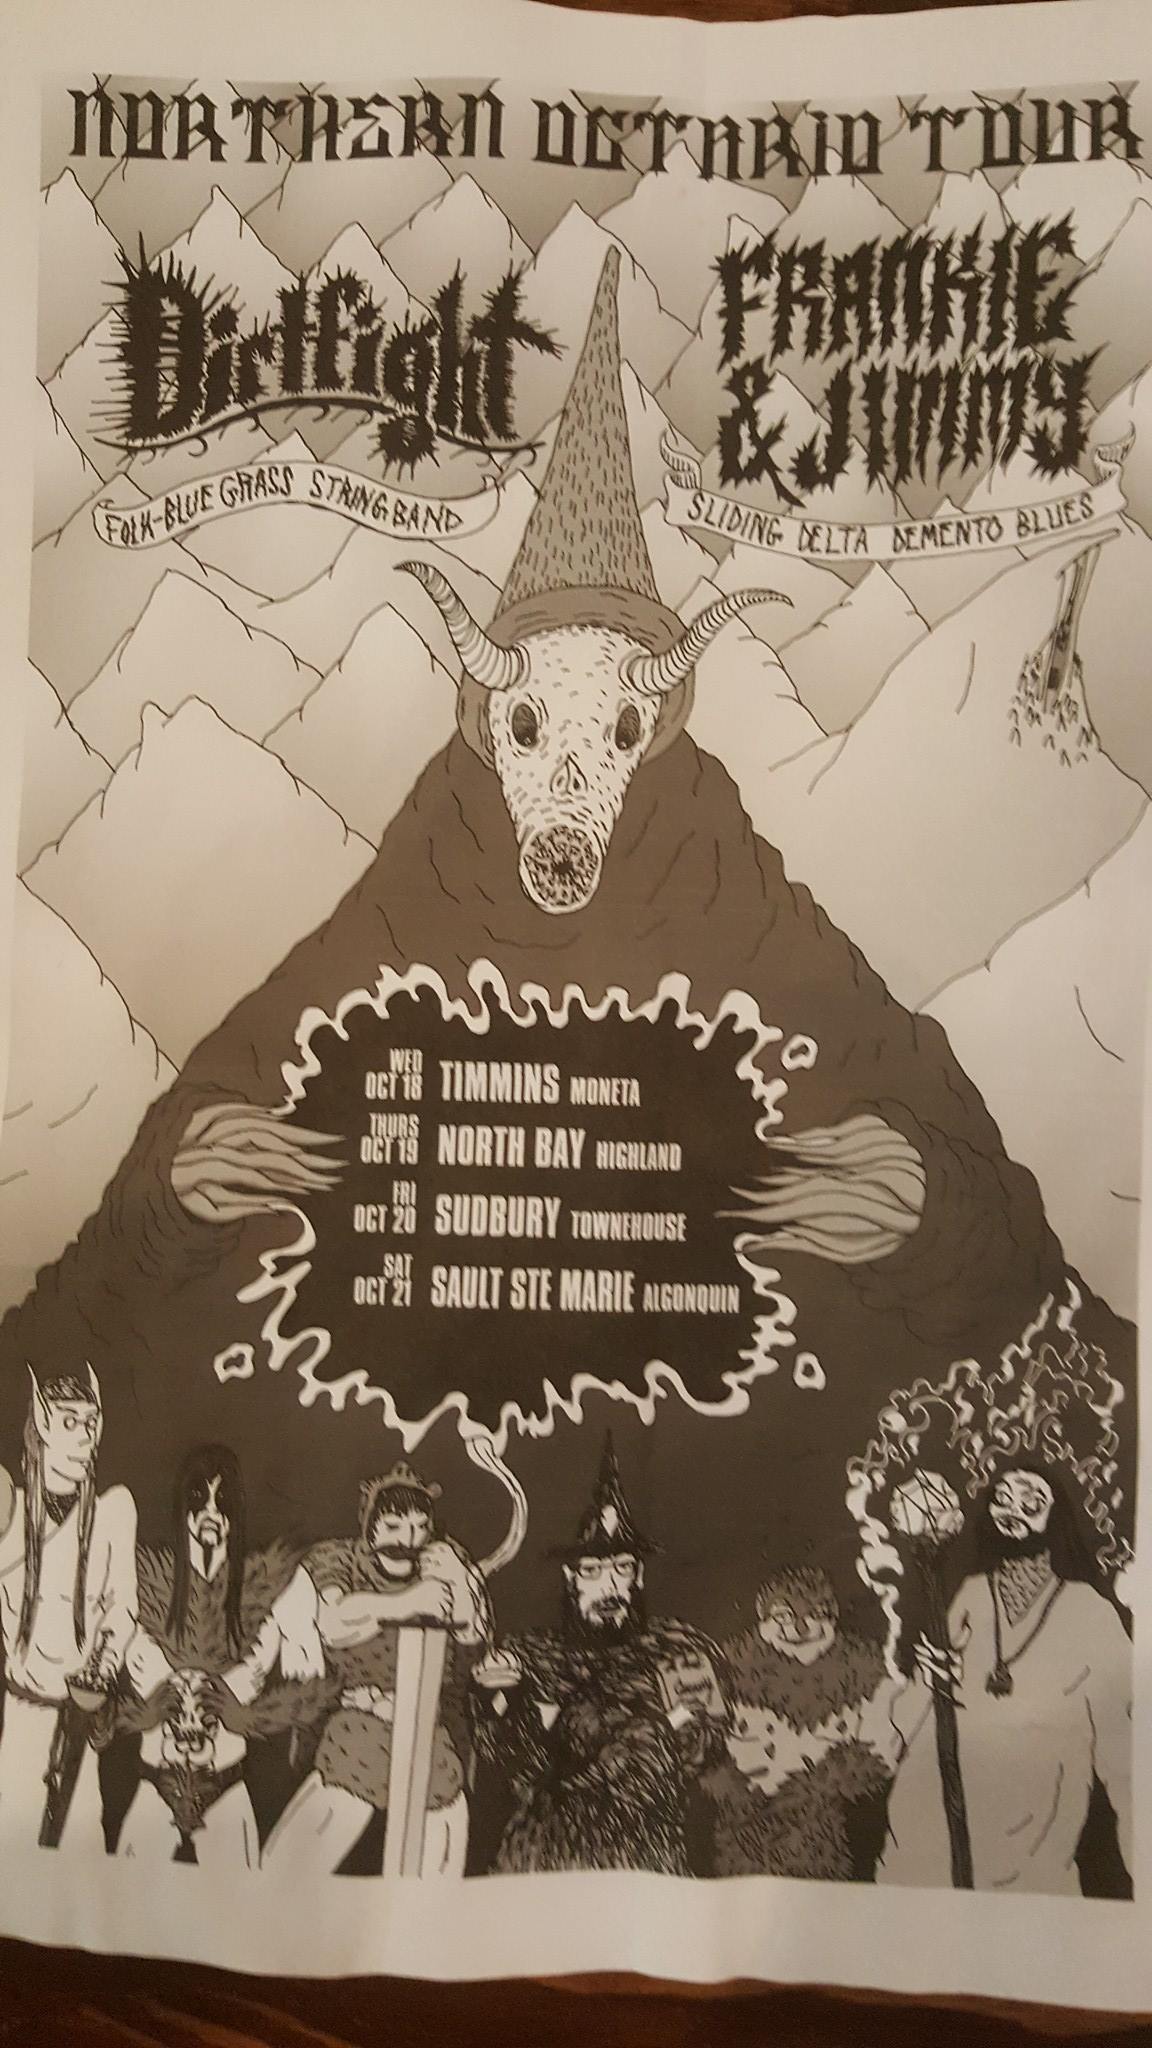 NORTHERN OCTARIO TOUR
Dirtfight
FOLK-BLUEGRASS STRINGBAND
FRANKIE
& JIMMY
SLIDING DELTA DEMENTO BLUES
WED
OCT 18 TIMMINS MONETA
THURS
OCT 19 NORTH BAY HIGHLAND
FRI
OCT 20 SUDBURY TOWNEHOUSE
SAT
OCT 21 SAULT STE MARIE ALGONQUIN